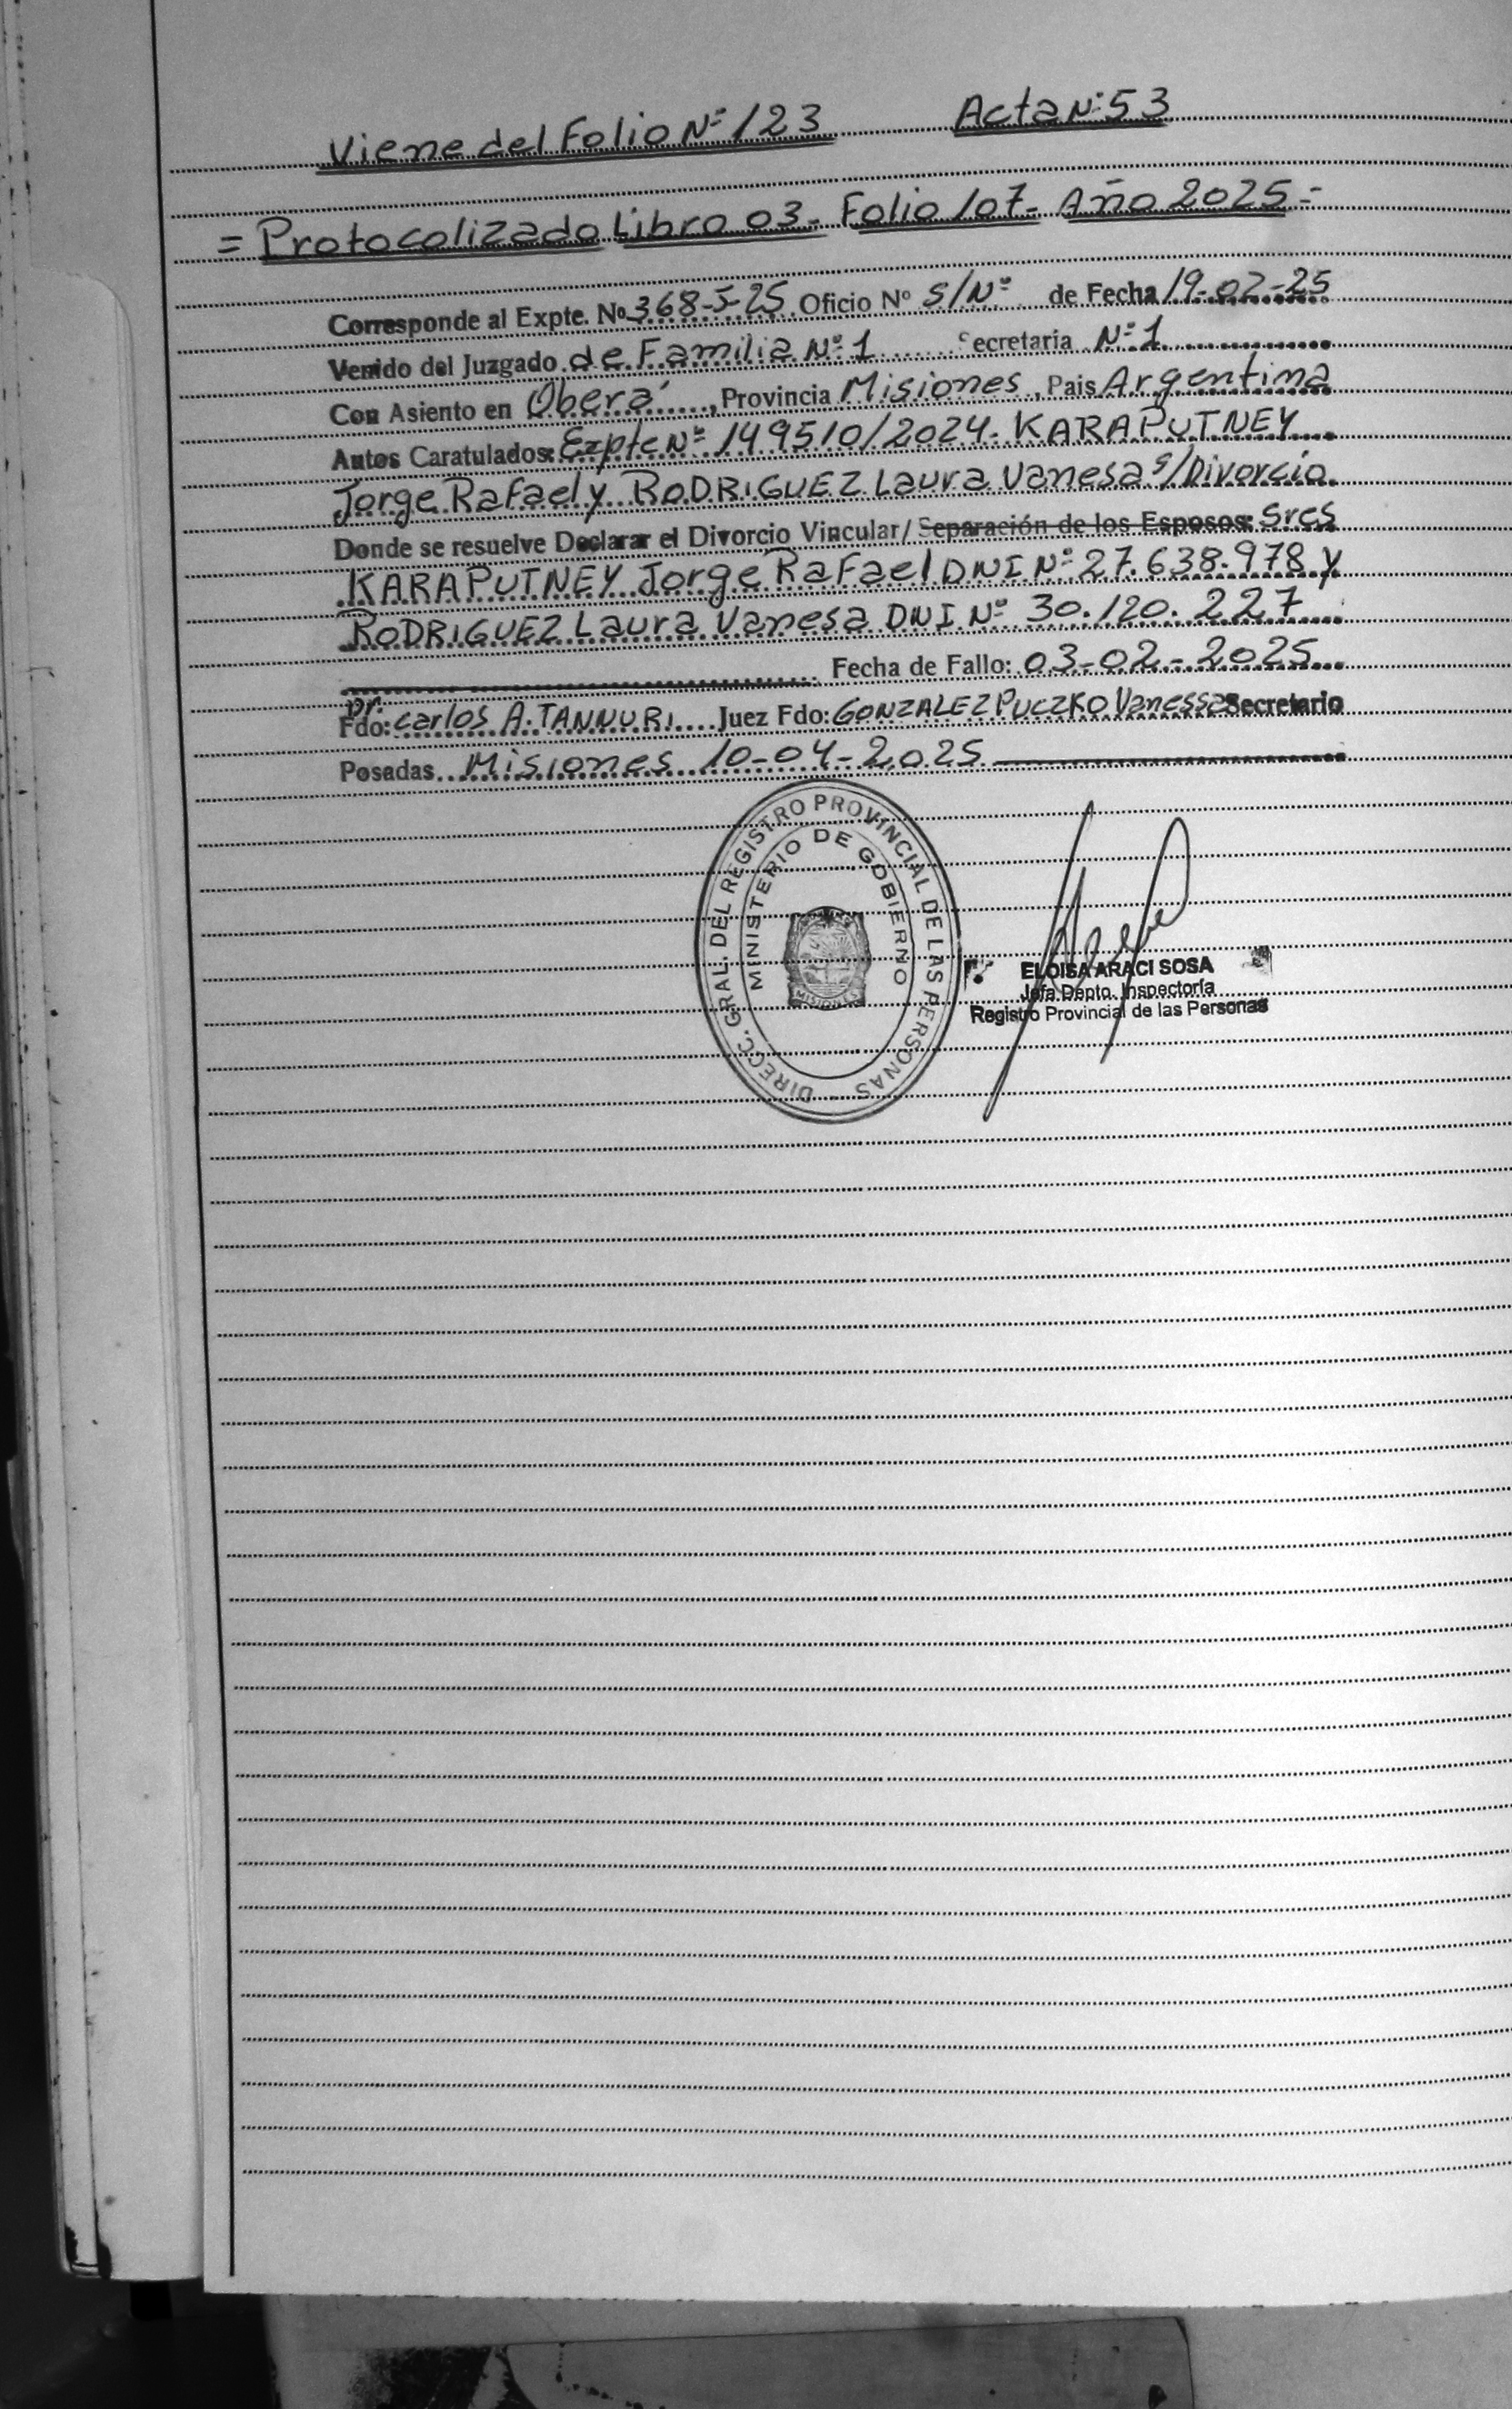 Viene del Folio Nº 123 Acta Nº 53
= Protocolizado Libro 03- Folio 107- Año 2025 =
Corresponde al Expte. Nº 368-5-25 Oficio Nº S/Nº de Fecha 19-02-25
Venido del Juzgado de Familia Nº 1 Secretaria Nº 1
Con Asiento en Oberá, Provincia Misiones, Pais Argentina
Autos Caratulados: Expte Nº 149510/2024- KARAPUTNEY
Jorge Rafael y RODRIGUEZ Laura Vanesa s/Divorcio.
Donde se resuelve Declarar el Divorcio Vincular/ Separación de los Esposos: Sres
KARAPUTNEY Jorge Rafael DNI Nº 27.638.978 y
RODRIGUEZ Laura Vanesa DNI Nº 30.120.227
Fecha de Fallo: 03-02-2025
Fdo: Dr. Carlos A. TANNURI Juez Fdo: GONZALEZ PUCZKO Vanessa Secretario
Posadas Misiones 10-04-2025
DIRECC. GRAL. DEL REGISTRO PROVINCIAL DE LAS PERSONAS
MINISTERIO DE GOBIERNO
MISIONES
ELOISA ARACI SOSA
Jefa Depto. Inspectoría
Registro Provincial de las Personas